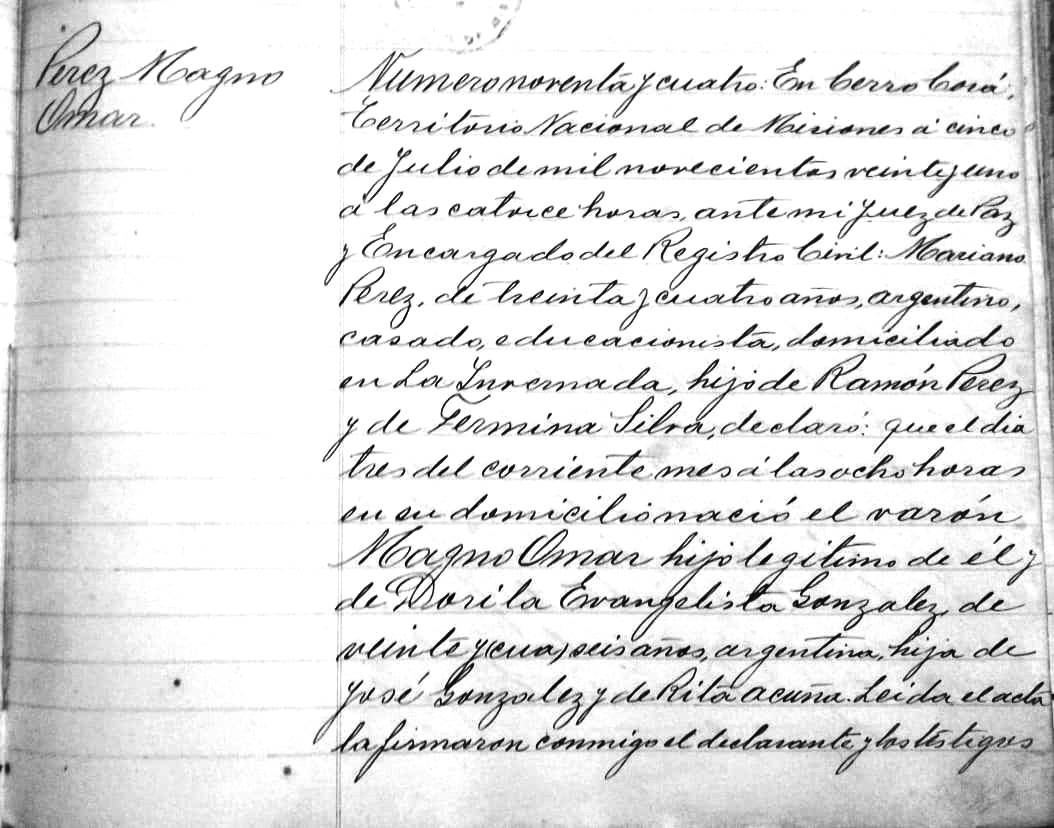 Perez Magno
Omar.
Numero noventa y cuatro: En Cerro Corá,
Territorio Nacional de Misiones á cinco
de Julio de mil novecientos veinte y uno
á las catorce horas, ante mi Juez de Paz
y Encargado del Registro Civil: Mariano
Perez, de treinta y cuatro años, argentino,
casado, educacionista, domiciliado
en La Invernada, hijo de Ramón Perez
y de Fermina Silva, declaró: que el dia
tres del corriente mes á las ocho horas
en su domicilio nació el varón
Magno Omar hijo legitimo de él y
de Dorila Evangelista Gonzalez, de
veinte y (cua) seis años, argentina, hija de
José Gonzalez y de Rita Acuña. Leida el acta
la firmaron conmigo el declarante y los testigos